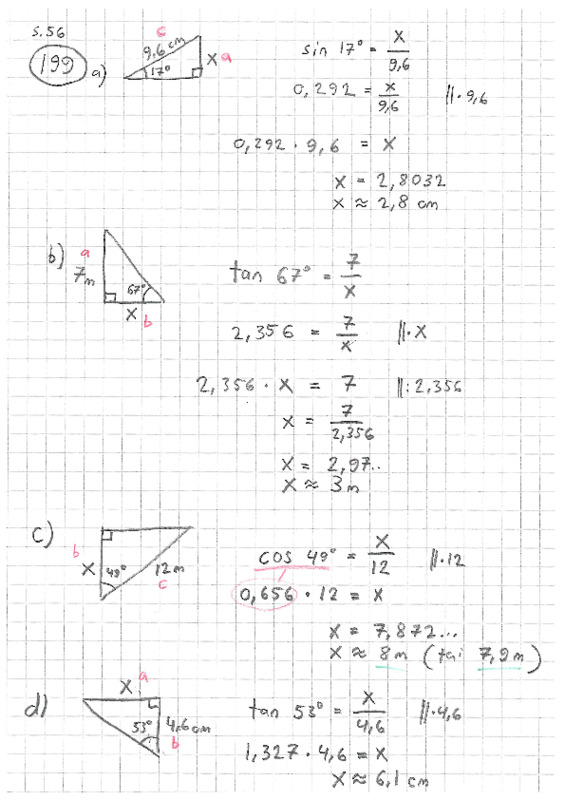 s.56
199
a)
c
9,6 cm
17°
x a
sin 17° = x/9,6
0,292 = x/9,6 ||·9,6
0,292 · 9,6 = x
x = 2,8032
x ≈ 2,8 cm
b)
a
7m
67°
x b
tan 67° = 7/x
2,356 = 7/x ||·x
2,356 · x = 7 ||:2,356
x = 7/2,356
x = 2,97..
x ≈ 3m
c)
b
x 49° 12m
c
cos 49° = x/12 ||·12
0,656 · 12 = x
x = 7,872...
x ≈ 8m (tai 7,9m)
d)
x a
53° 4,6cm
b
tan 53° = x/4,6 ||·4,6
1,327 · 4,6 = x
x ≈ 6,1 cm